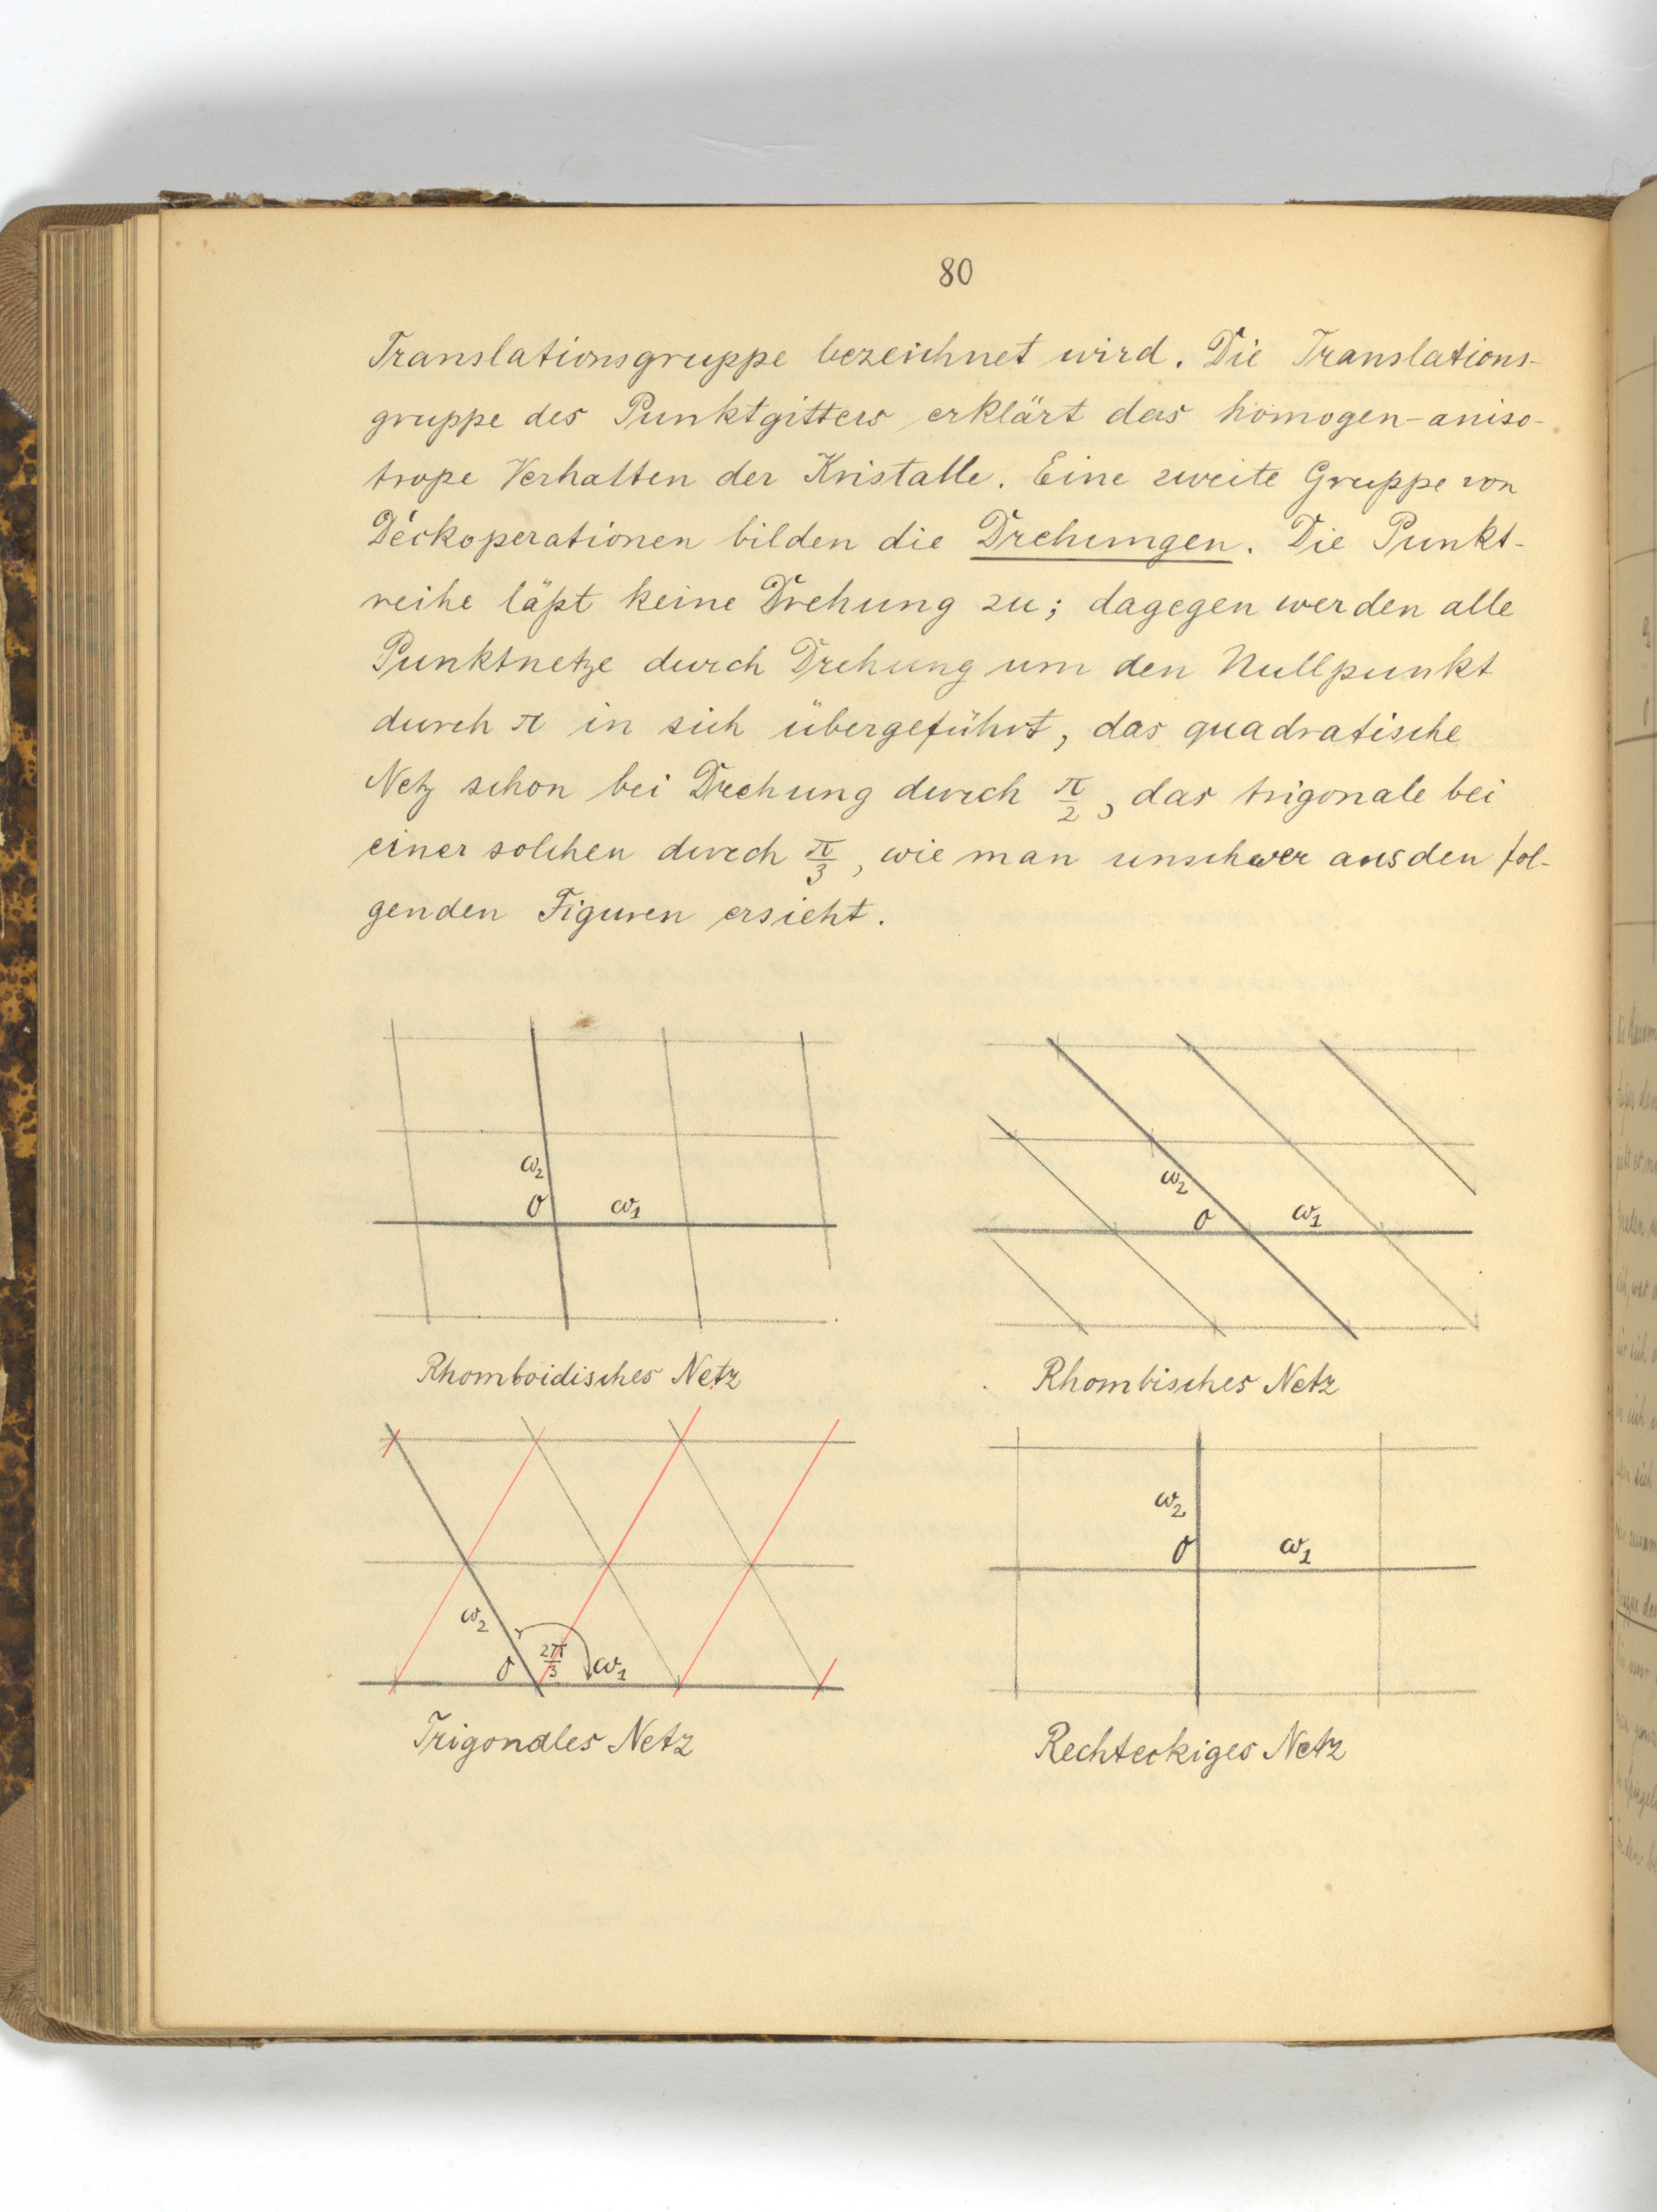 80
Translationsgruppe bezeichnet wird. Die Translations-
gruppe des Punktgitters erklärt das homogen-aniso-
trope Verhalten der Kristalle. Eine zweite Gruppe von
Deckoperationen bilden die Drehungen. Die Punkt-
reihe läßt keine Drehung zu; dagegen werden alle
Punktnetze durch Drehung um den Nullpunkt
durch π in sich übergeführt, das quadratische
Netz schon bei Drehung durch π/2, das trigonale bei
einer solchen durch π/3, wie man unschwer aus den fol-
genden Figuren ersieht.
ω2
O ω1
Rhomboidisches Netz
ω2
O ω1
Rhombisches Netz
ω2
O 2π/3 ω1
Trigonales Netz
ω2
O ω1
Rechteckiges Netz